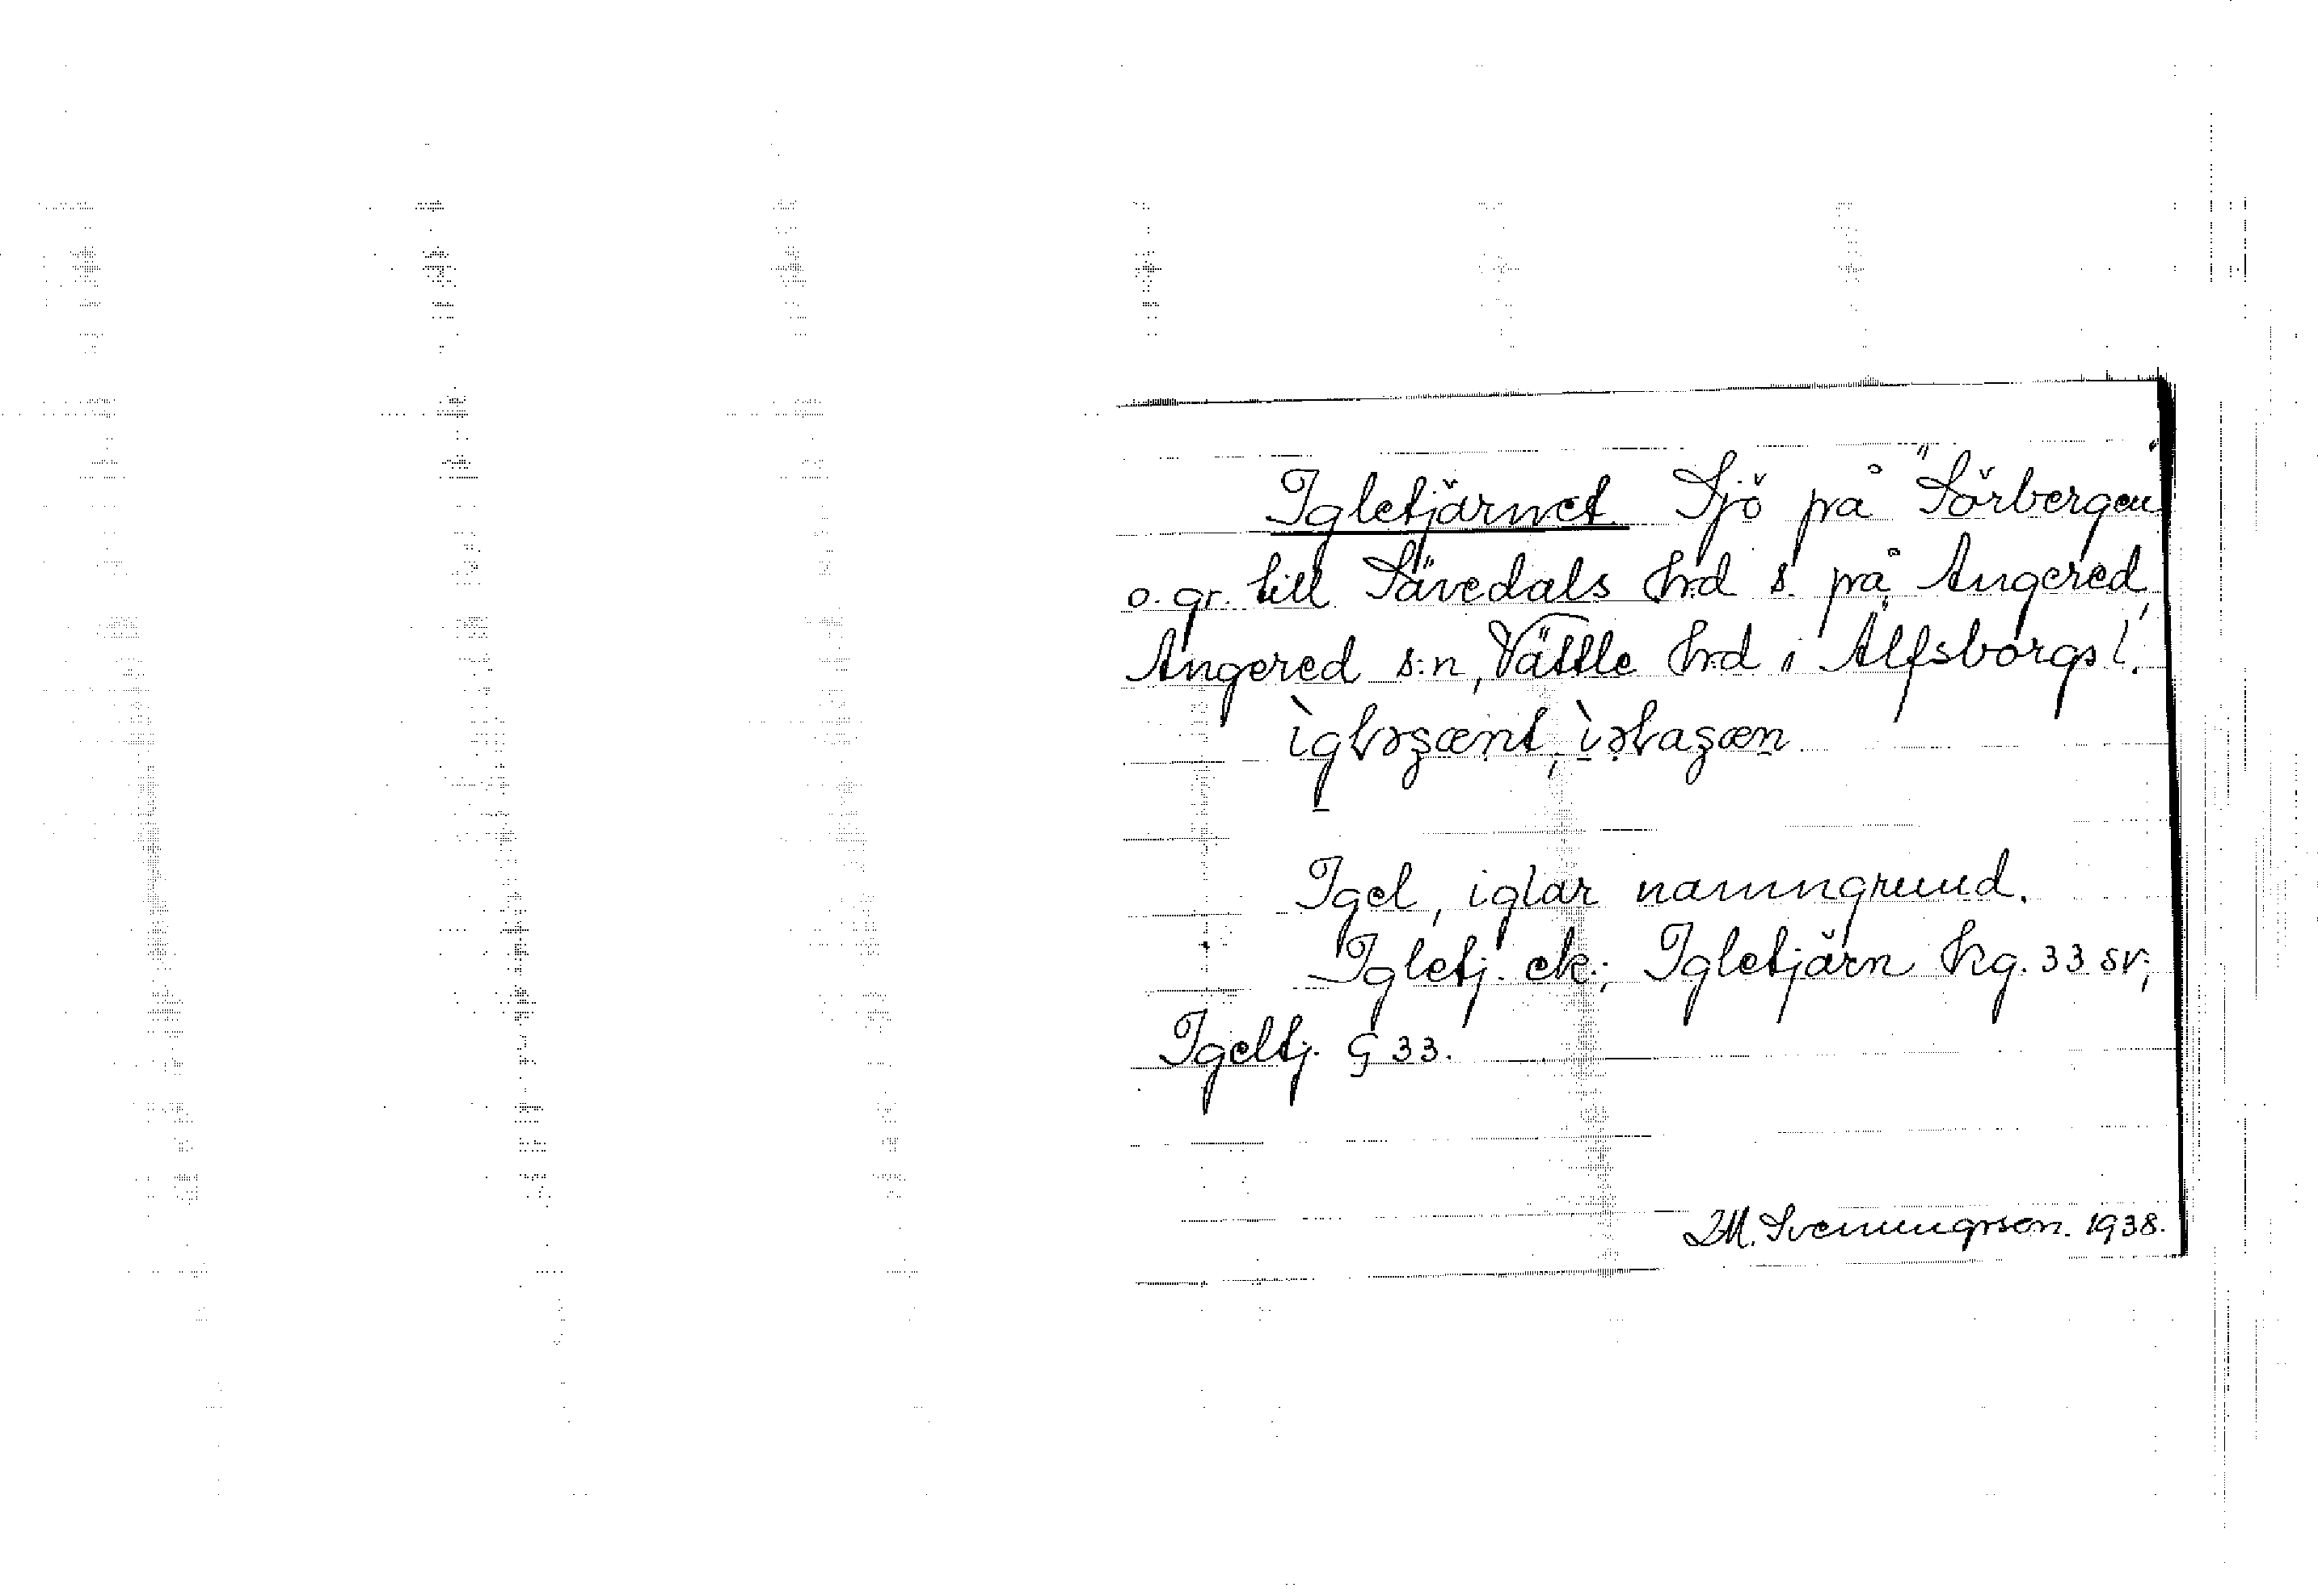 Igletjärnet Sjö på "Sörbergen"
o. gr. till Sävedals hrd s. på Angered,
Angered s:n, Vättle hrd i Älfsborgs l.
Igel, iglar namngrund.
Igletj. ek.; Igletjärn hg. 33 sv;
Igeltj. G 33.
Svenungsson. 1938.